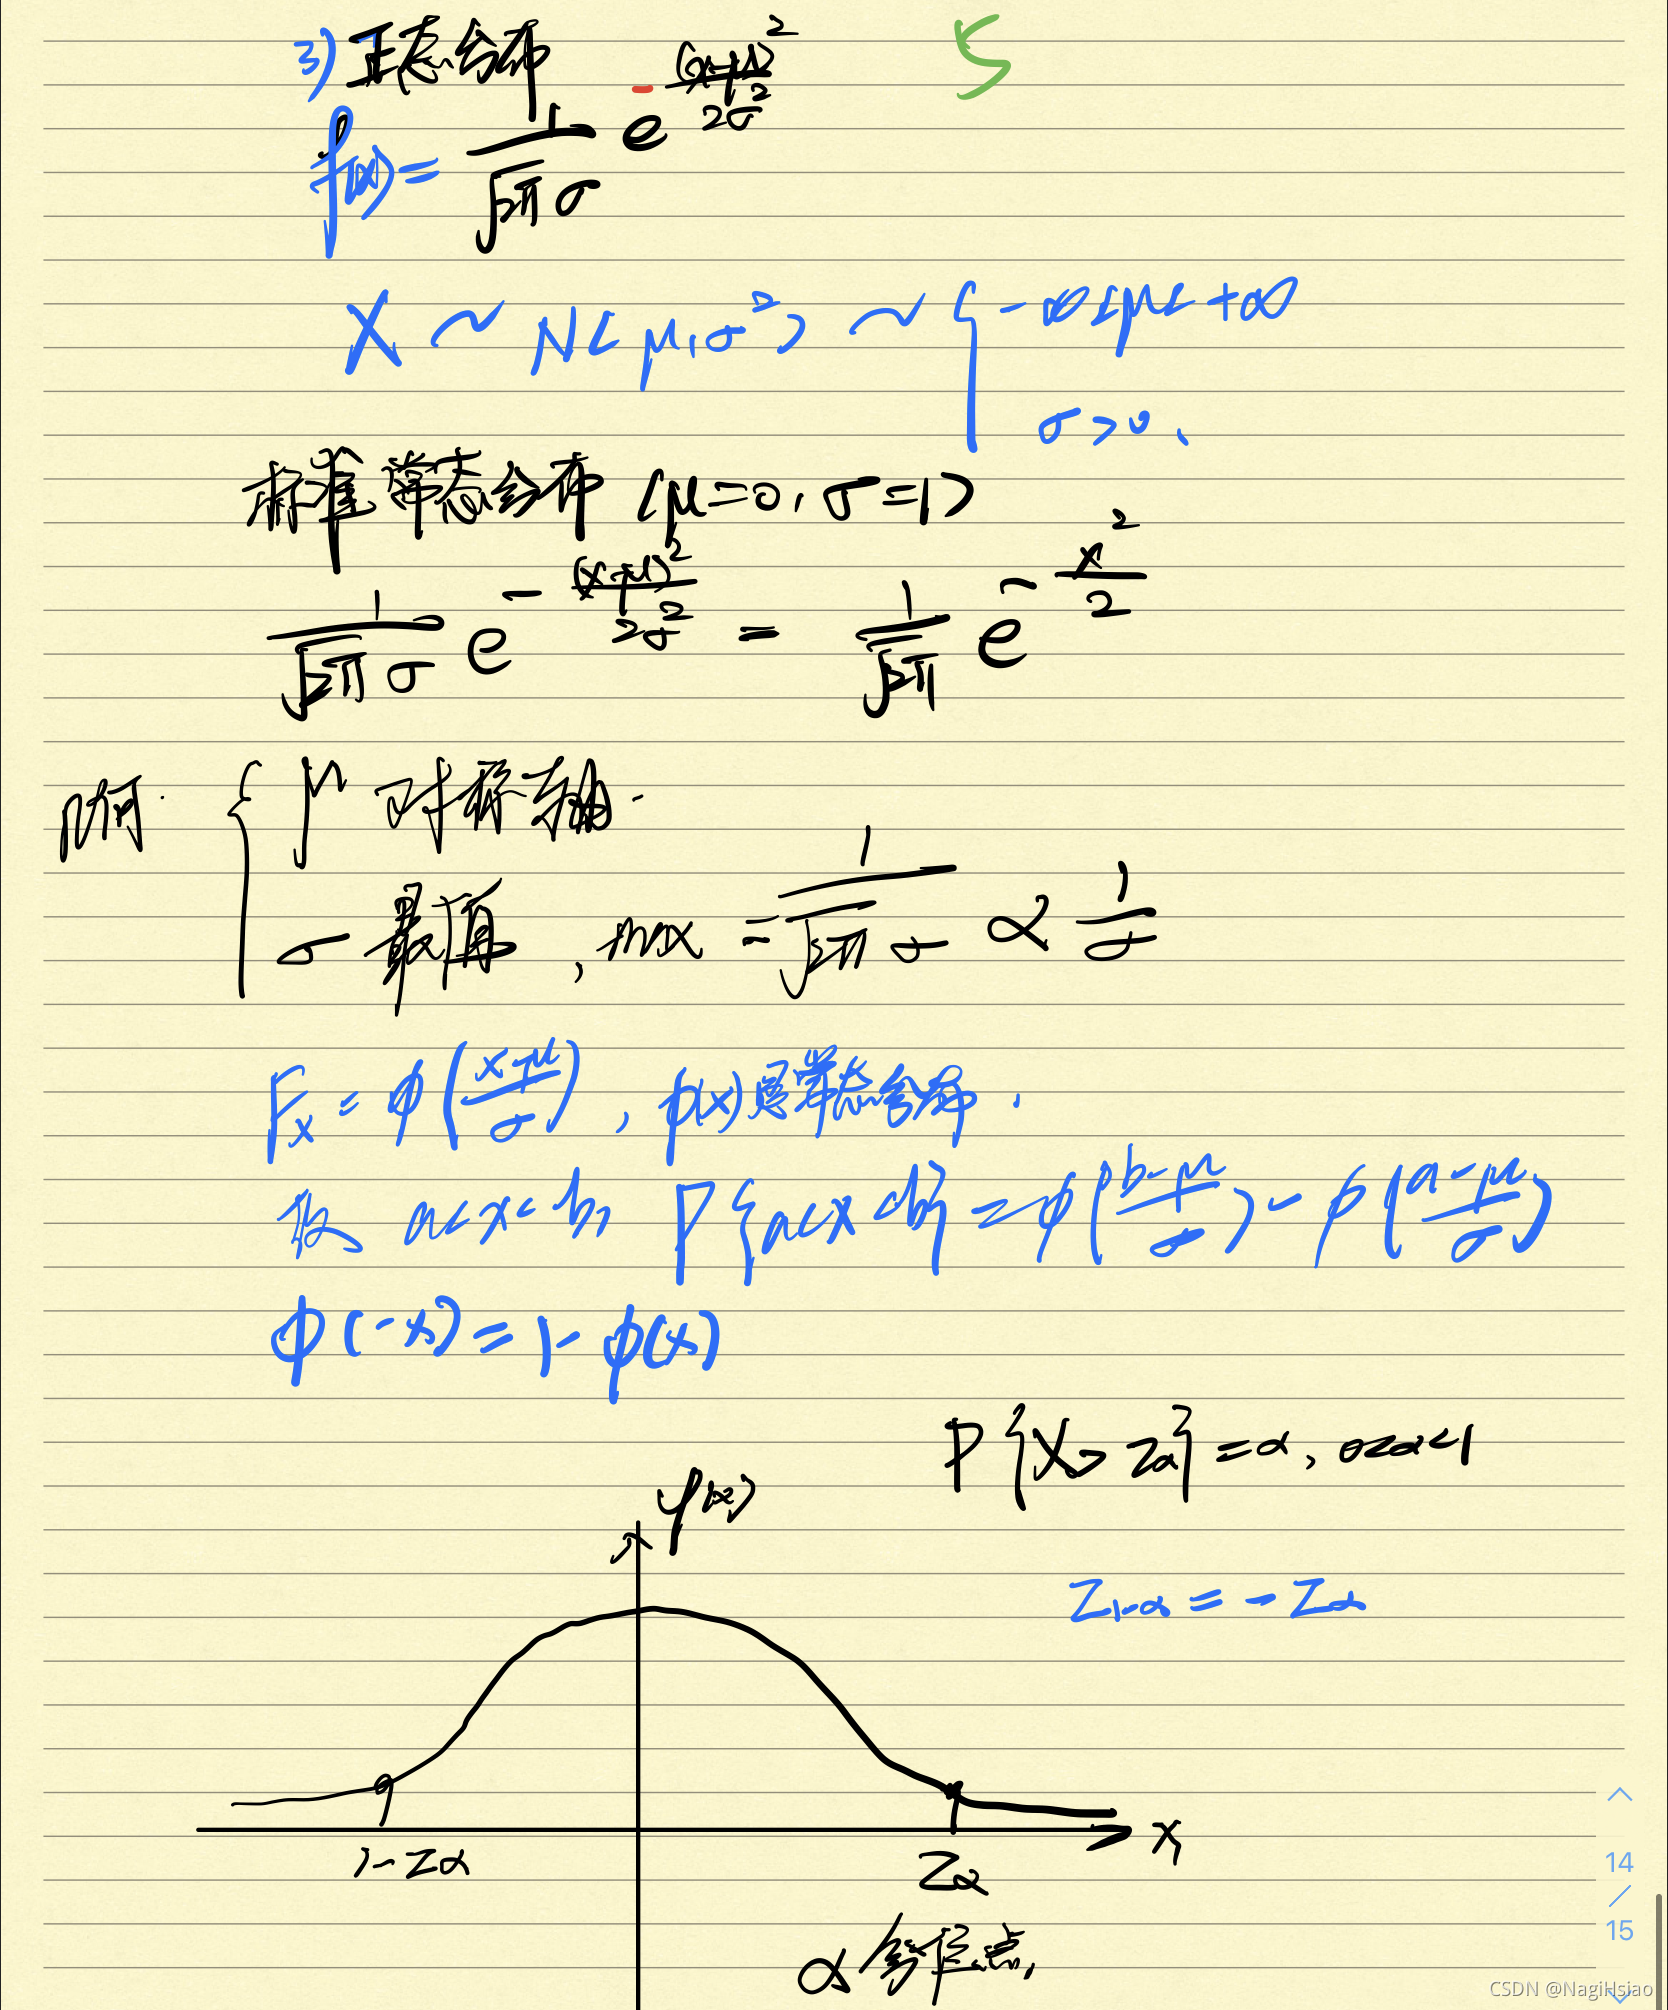 3) 正态分布 5
f(x) = 1/(√2π σ) e^(-(x-μ)²/(2σ²))
X ~ N(μ,σ²) ~ { -∞<μ<+∞
σ>0、
标准常态分布 (μ=0, σ=1)
1/(√2π σ) e^(-(x-μ)²/(2σ²)) = 1/√2π e^(-x²/2)
{ μ 对称轴.
σ 最值, max = 1/(√2π σ) ∝ 1/σ
Fx = φ((x-μ)/σ), φ(x) 常态分布.
故 a<x<b, P{a<X<b} = φ((b-μ)/σ) - φ((a-μ)/σ)
φ(-x) = 1-φ(x)
P{X>Zα} = α, 0<α<1
φ(x)
Z1-α = -Zα
x
1-Zα Zα
α 分位点,
14
/
15
CSDN @NagiHsiao